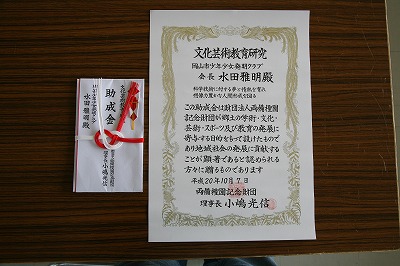 文化芸術教育研究
岡山市少年少女発明クラブ
会長 水田雅明殿
科学技術に対する夢と情熱を育み
創造力豊かな人間形成を図る
この助成金は財団法人両備檉園
記念財団が郷土の学術・文化・
芸術・スポーツ及び教育の発展に
寄与する目的をもって設けたもので
あり地域社会の発展に貢献する
ことが顕著であると認められる
方々に贈るものであります
平成20年10月7日
両備檉園記念財団
理事長 小嶋光信
助成金
岡山市少年少女発明クラブ
水田雅明殿
小嶋光信